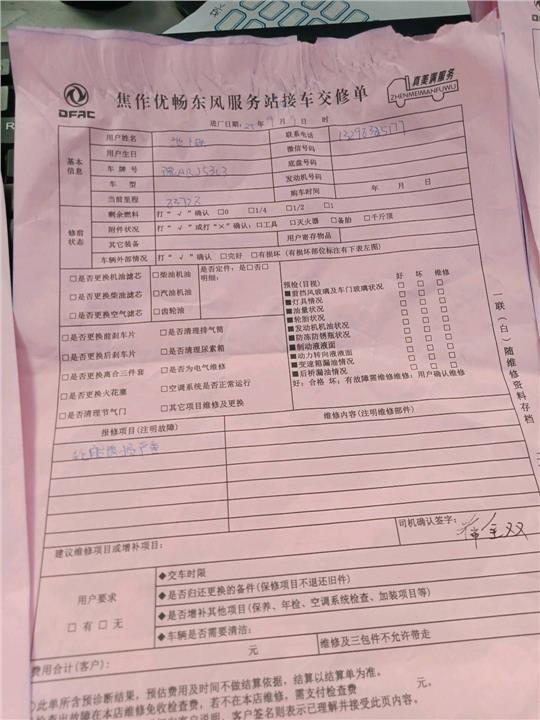 DFAC
焦作优畅东风服务站接车交修单
真美满服务
ZHENMEIWANFUWU
送厂日期：25年9月9日 时
基本信息
用户姓名
联系电话
用户生日 微信号码
车牌号 底盘号码
车型 发动机号码
当前里程 23723 购车时间 年 月 日
修前状态
剩余燃料 打"√"确认 □0 □1/4 □1/2 □1
附件状况 打"√"或打"×"确认：□工具 □灭火器 □备胎 □千斤顶
其它装备 用户寄存物品
车辆外部情况 打"√"确认 □完好 □有损坏(有损坏部位标注有下表左图)
□是否更换机油滤芯 □柴油机油 是否定件：是□否□
明细：
□是否更换柴油滤芯 □汽油机油
□是否更换空气滤芯 □齿轮油
□是否更换前刹车片 □是否清理排气筒
□是否更换后刹车片 □是否清理尿素箱
□是否更换离合三件套 □是否为电气维修
□是否更换火花塞 □空调系统是否正常运行
□是否清理节气门 □其它项目维修及更换
预检(目视) 好 坏 维修
■前挡风玻璃及车门玻璃状况 □ □ □
■灯具情况 □ □ □
■油量状况 □ □ □
■轮胎状况 □ □ □
■发动机机油状况 □ □ □
■防冻防锈瓶状况 □ □ □
■制动液液面 □ □ □
■动力转向液液面 □ □ □
■变速箱漏油情况 □ □ □
■后桥漏油情况 □ □ □
好：合格 坏：有故障需维修维修：用户确认维修
一联(白)随维修资料存档
报修项目(注明故障) 维修内容(注明维修部件)
司机确认签字：
建议维修项目或增补项目：
用户要求
□有□无
◆交车时限
◆是否归还更换的备件(保修项目不退还旧件)
◆是否增补其他项目(保养、年检、空调系统检查、加装项目等)
◆车辆是否需要清洁：
费用合计(客户)： 元 维修及三包件不允许带走
此单所含预诊断结果，预估费用及时间不做结算依据，结算以结算单为准。
检查出故障在本店维修免收检查费，若不在本店维修，需支付检查费 元。
客户签名则表示已理解并接受此页内容。